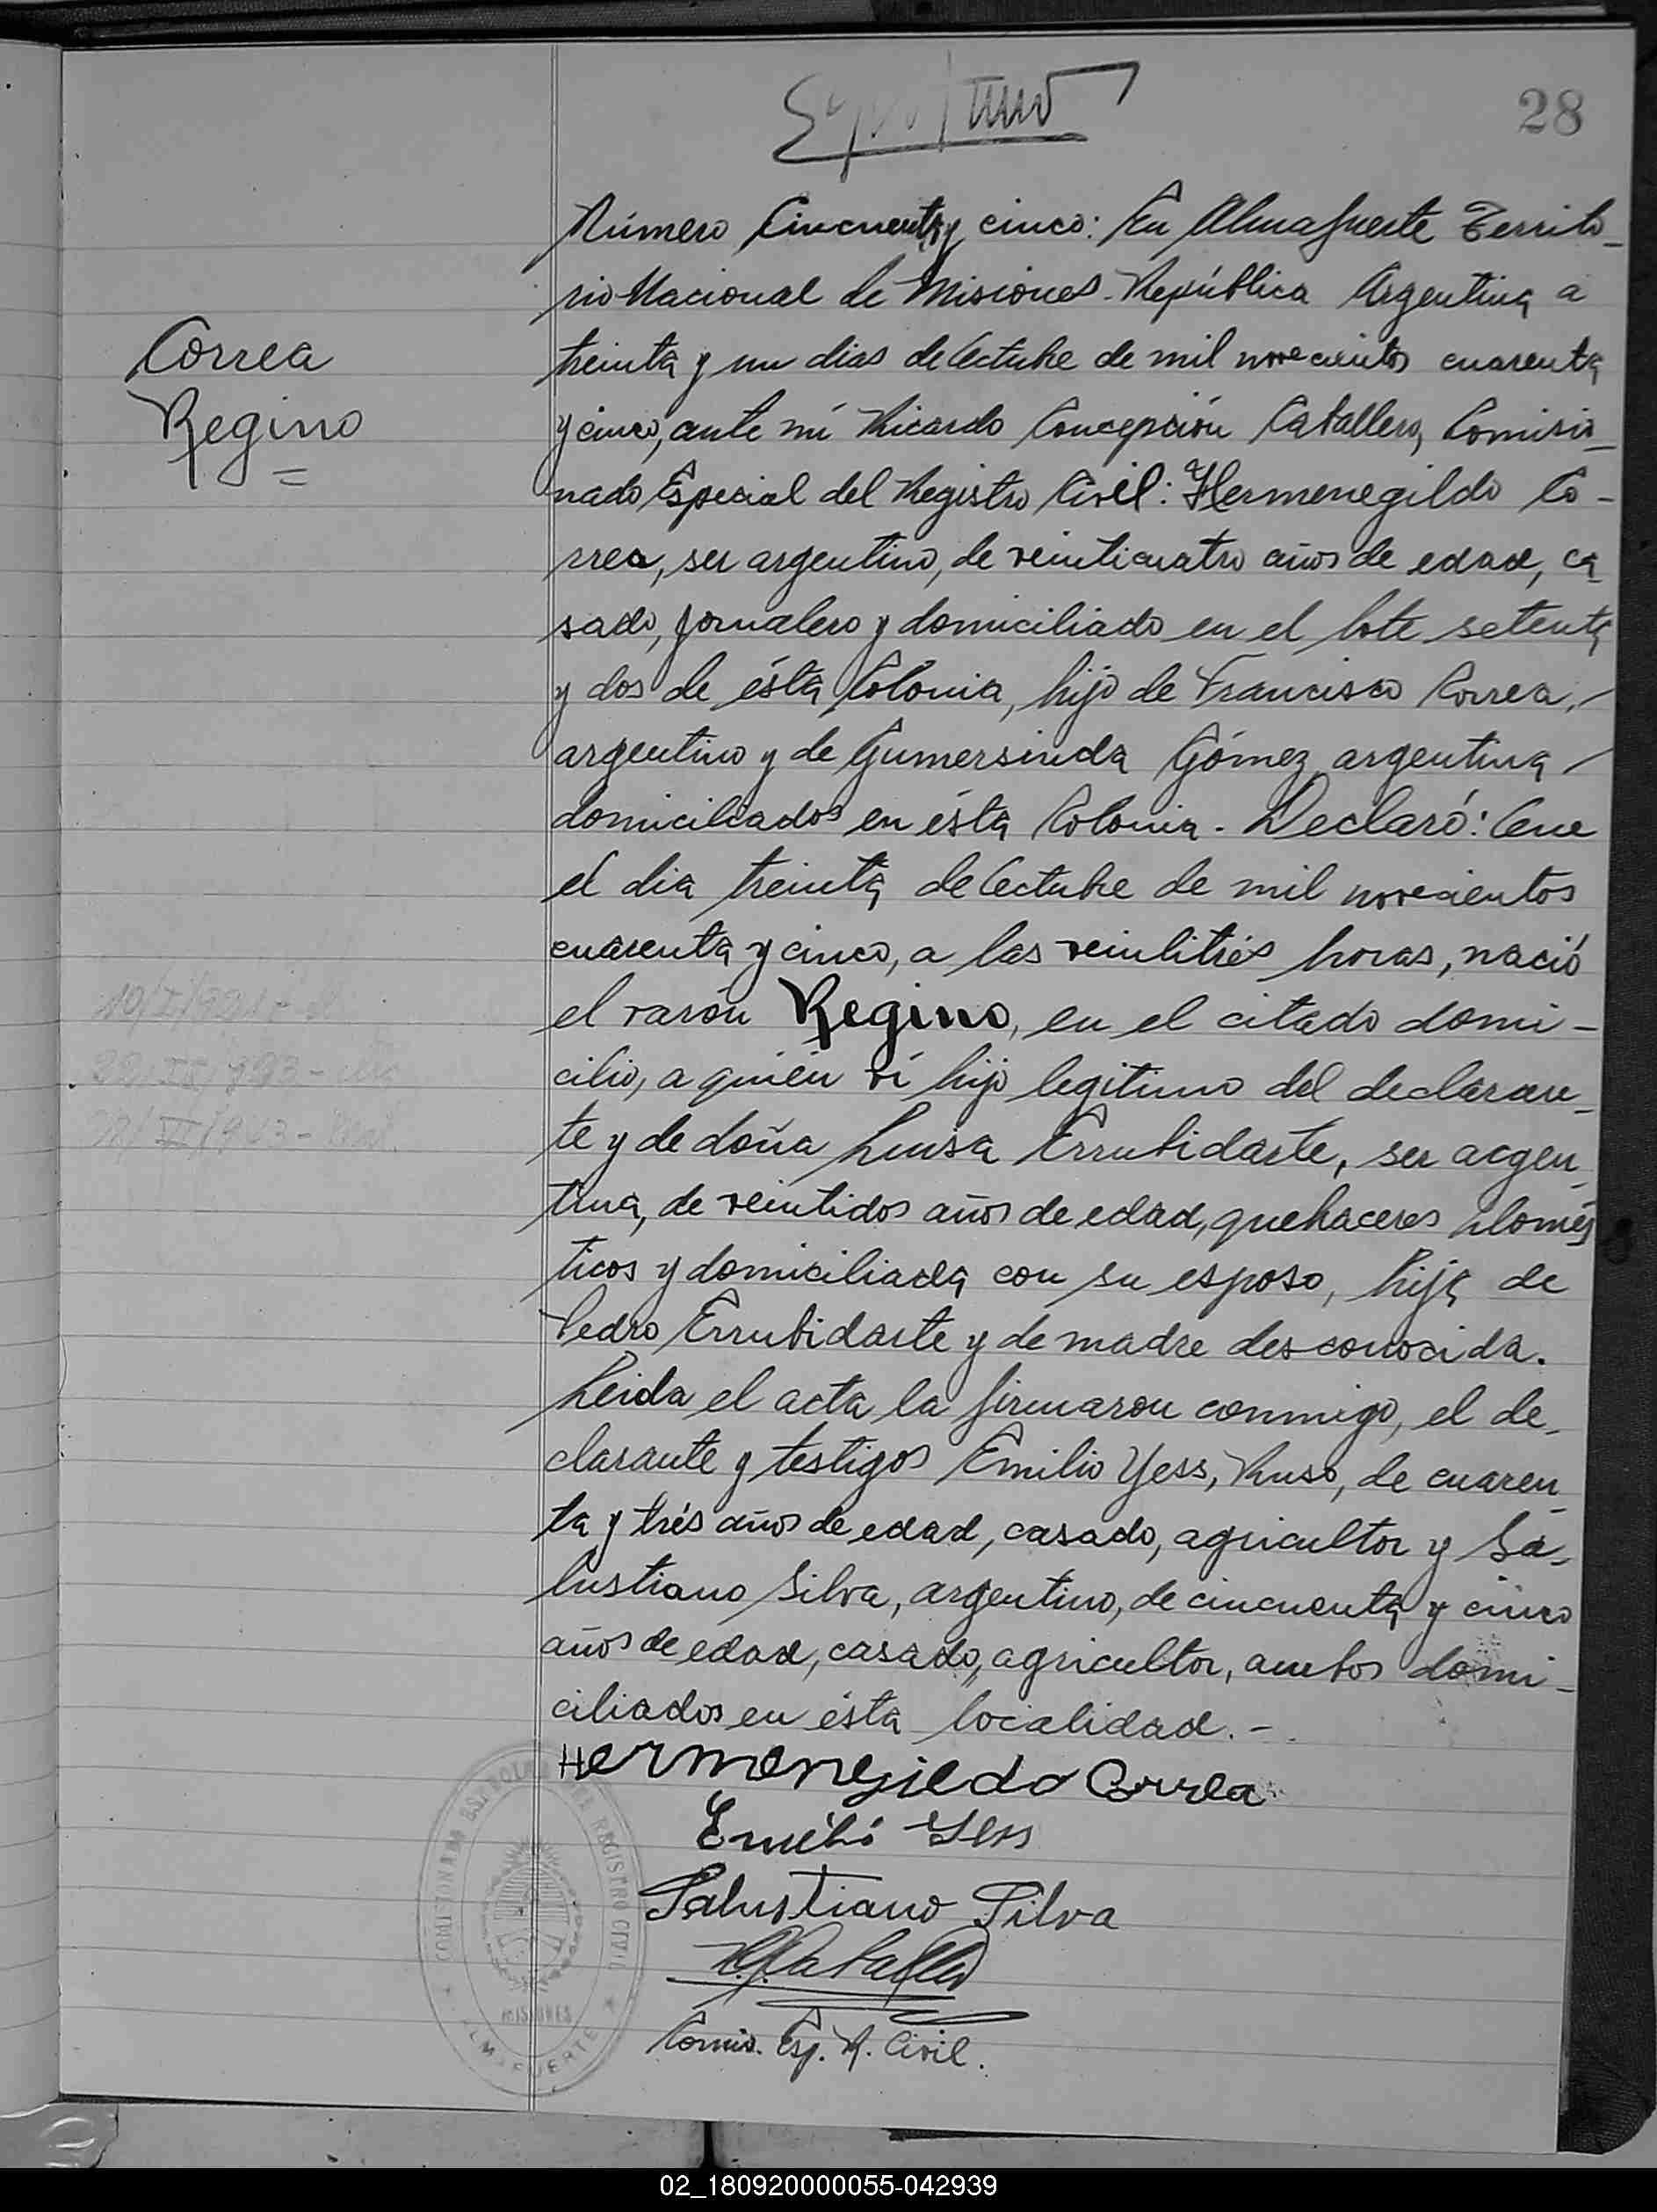 28
Número Cincuenta y cinco: En Almafuerte Territo-
rio Nacional de Misiones - República Argentina a
treinta y un dias de Octubre de mil novecientos cuarenta
y cinco, ante mí Ricardo Concepción Caballero, Comisio-
nado Especial del Registro Civil: Hermenegildo Co-
rrea, ser argentino, de veinticuatro años de edad, ca-
sado, jornalero y domiciliado en el lote setenta
y dos de ésta Colonia, hijo de Francisco Correa, -
argentino y de Gumersinda Gómez argentina -
domiciliados en ésta Colonia. Declaró: Que
el dia treinta de Octubre de mil novecientos
cuarenta y cinco, a las veintitrés horas, nació
el varón Regino, en el citado domi-
cilio, a quién ví hijo legitimo del declaran-
te y de doña Luisa Errubidarte, ser argen-
tina, de veintidos años de edad, quehaceres domés
ticos y domiciliada con su esposo, hija de
Pedro Errubidarte y de madre desconocida.
Leida el acta la firmaron conmigo, el de-
clarante y testigos Emilio Yess, Ruso, de cuaren-
ta y trés años de edad, casado, agricultor y Sa-
lustiano Silva, argentino, de cincuenta y cinco
años de edad, casado, agricultor, ambos domi-
ciliados en ésta localidad. -
Correa
Regino
Hermenegildo Correa
Emilio Yess
Salustiano Silva
R.C.Caballero
Comis. Esp. R. Civil.
REGISTRO CIVIL
MISIONES
ALMAFUERTE
02_180920000055-042939